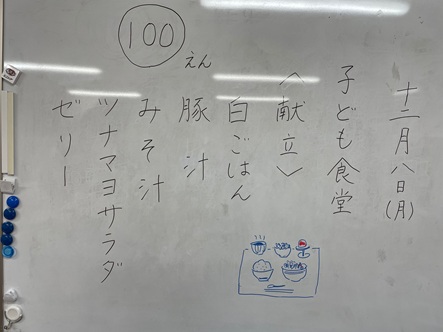 十二月八日(月)
子ども食堂
〈献立〉
白ごはん
豚汁
みそ汁
ツナマヨサラダ
ゼリー
100えん